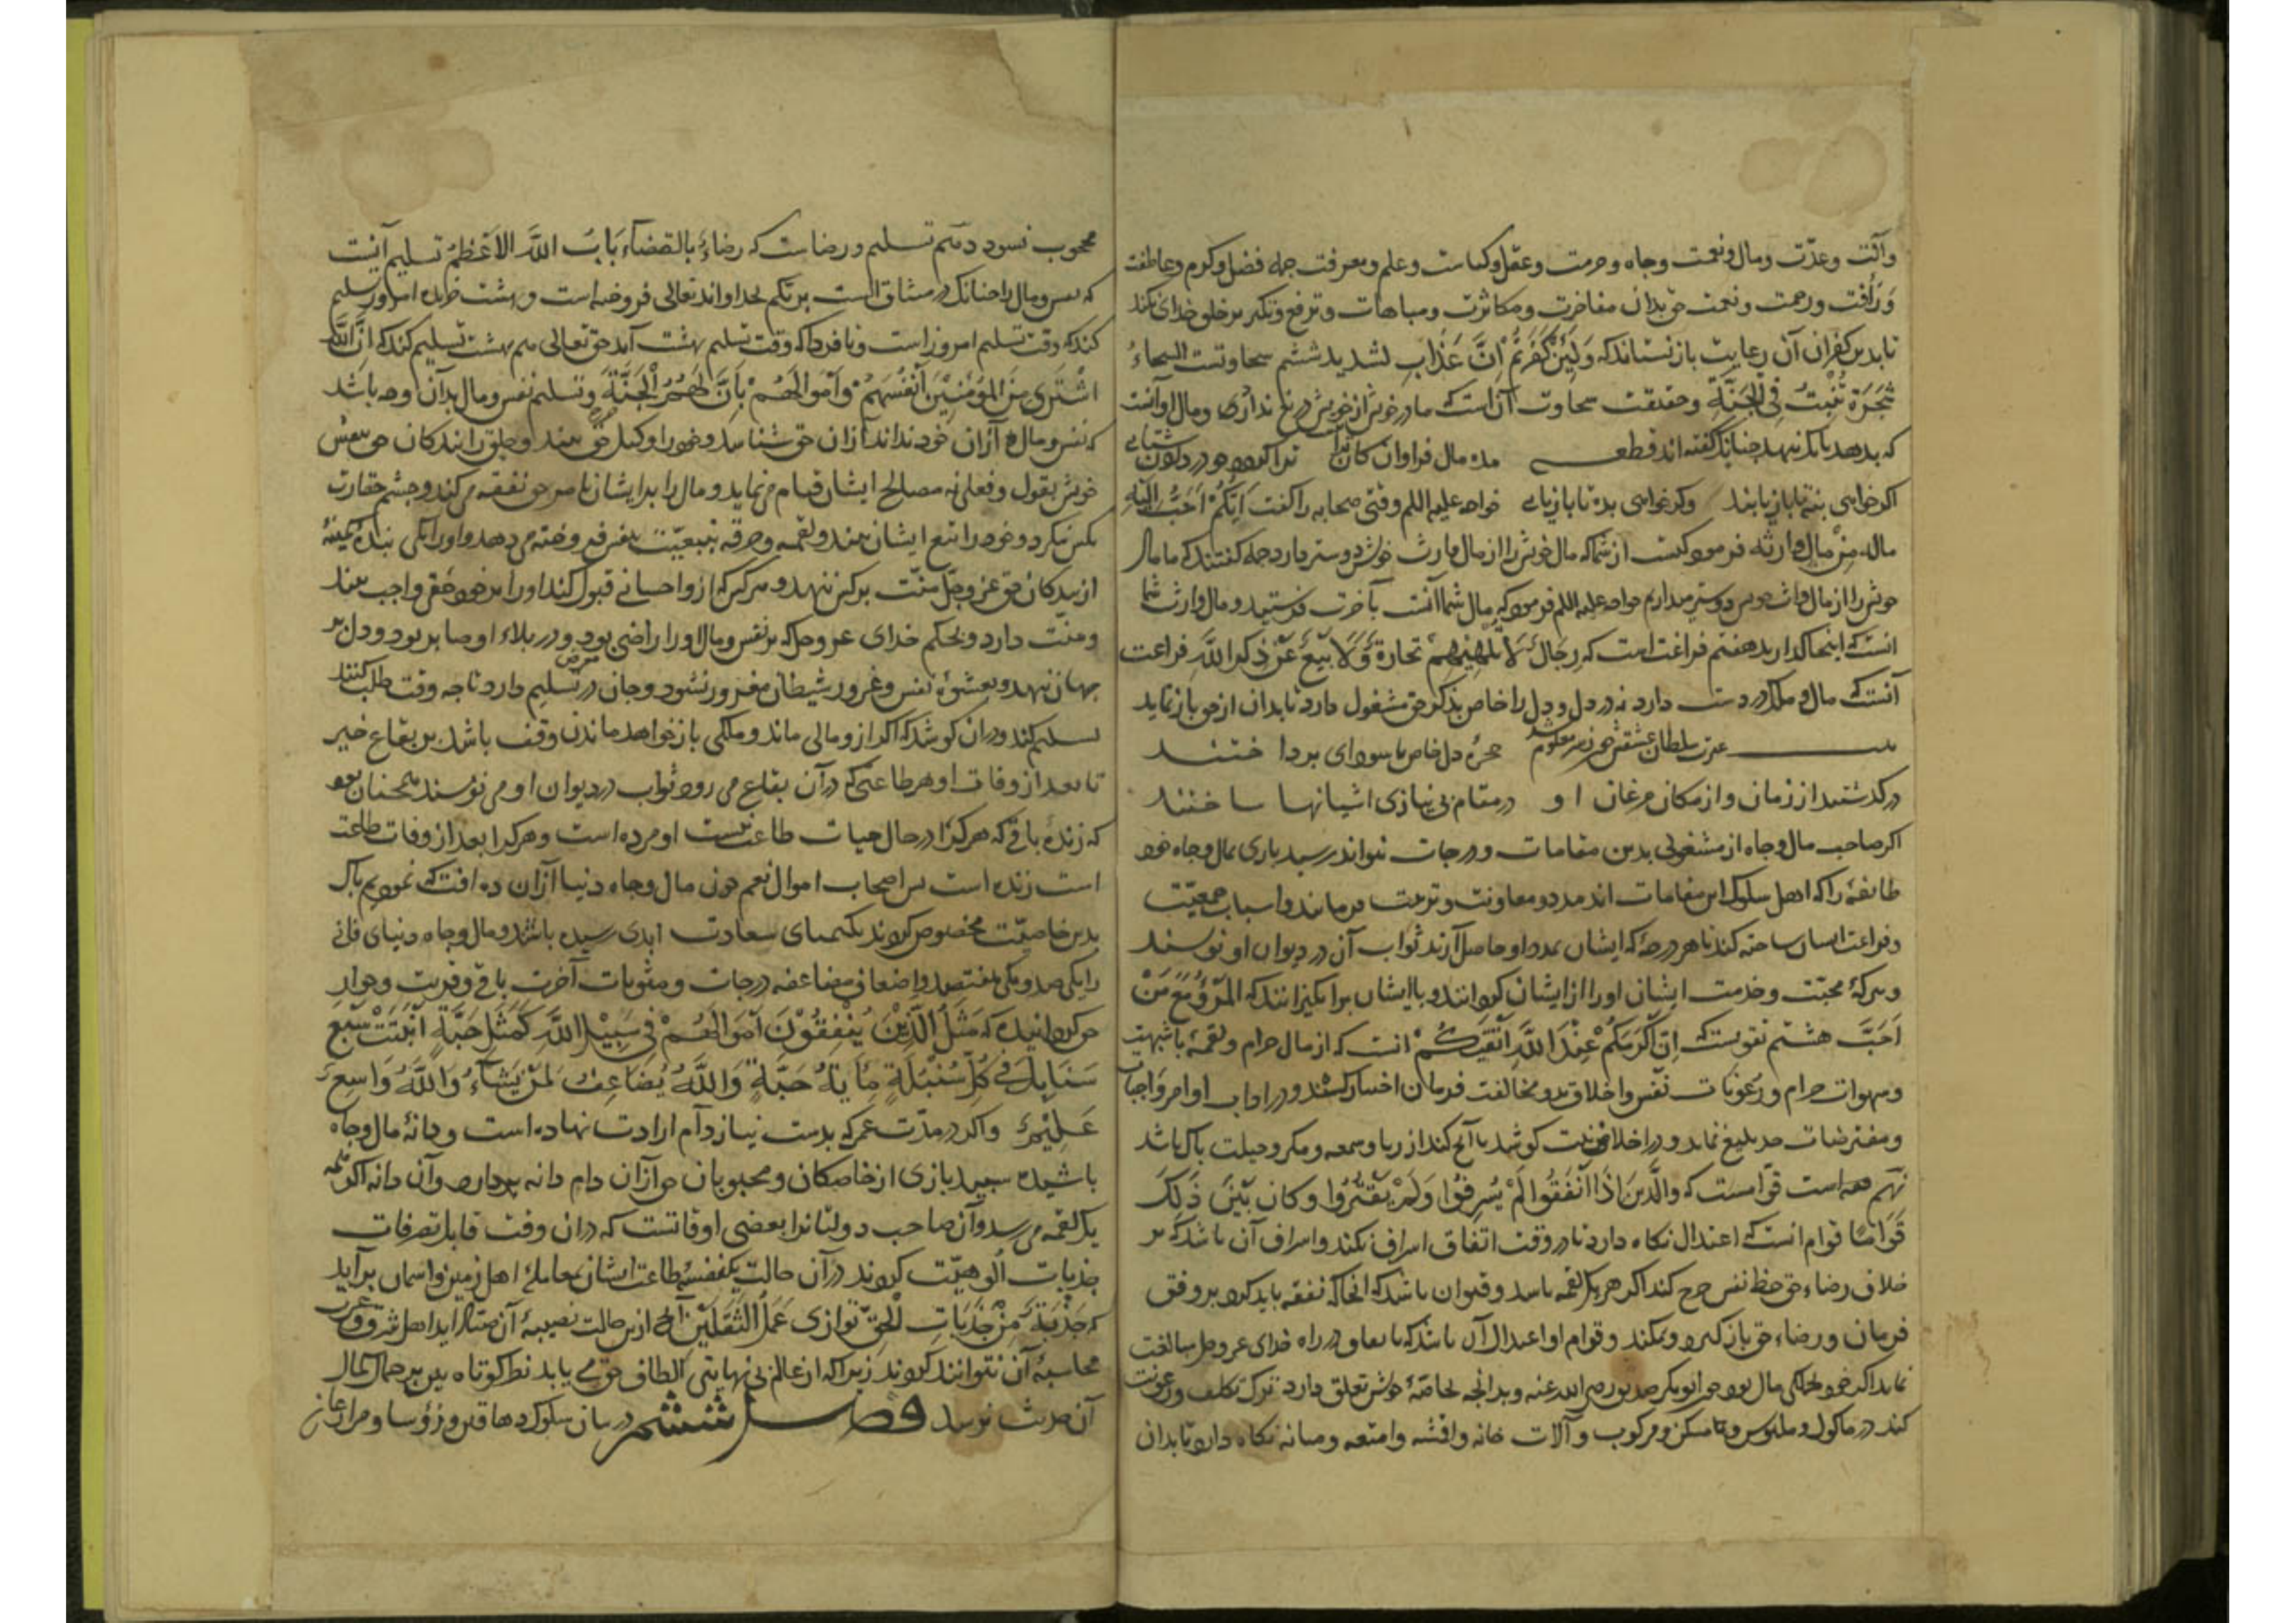 وآلت وعدّت ومال ونعمت وجاه وحرمت وعقل وکیاست وعلم ومعرفت جمله فضل وکرم وعاطفت
وَرَأفت ورحمت ونعمت حق بداند مفاخرت ومکاثرت ومباهات وترفع وتکبر بر خلق خدای نکند
تا بدین کفران آن رعایت باز نستاند که وَلَئِنْ کَفَرْتُمْ اِنَّ عَذَابِی لشدید ششم سخاوتست السخاءُ
شَجَرَة تَنْبُتُ فِی الْجَنَّةِ وحقیقت سخاوت آنست که مال خویش از خویش دریغ نداری ومال او آنست
که بدهد نه آنک بنهد چنانک گفته اند قطعــه مده مال فراوان کان
اکر خواهی بنه تا باز یابند وکر خواهی بده تا باز یابی خواجه علیه السلم وقتی صحابه را گفت اَیُّکُمْ اَحَبُّ اِلَیْهِ
ماله مِنْ مالِ وارثه فرمود کیست از شما که مال خویش را از مال وارث خویش دوستر دارد جمله گفتند که ما مال
خویش را از مال وارث خویش دوستر میداریم خواجه علیه السلم فرمود که مال شما آنست بآخرت فرستید ومال وارث شما
آنست که اینجا گذارید هفتم فراغت است که رِجَالٌ لَا تُلْهِیْهِمْ تِجَارَةٌ وَلَا بَیْعٌ عَنْ ذِکْرِ اللَّهِ فراغت
آنست که مال وملک در دست دارد نه در دل ودل را خاص بذکر حق مشغول دارد تا بدان از حق باز نماید
بیت عزت سلطان عشقش چون حجرهٔ دل خاص با سودای پرداختند
در گذشتند از زمان واز مکان مرغان او در مقام بی نیازی آشیانها ساختند
اکر صاحب مال وجاه از مشغولی بدین مقامات ودرجات نتواند رسید باری بمال وجاه خود
طایفهٔ را که اهل سلوک این مقامات اند مدد ومعاونت وتربیت فرماید واسباب جمعیّت
وفراغت ایشان ساخته کند تا هر درجهٔ که ایشان بمدد او حاصل آرند ثواب آن در دیوان او نویسند
وببرکهٔ محبّت وخدمت ایشان او را از ایشان گردانند وبا ایشان برانگیزانند که المَرْءُ مَعَ مَنْ
اَحَبَّ هشتم تقویست که اِنَّ اَکْرَمَکُمْ عِنْدَ اللَّهِ اَتْقَیکُمْ آنست که از مال حرام ولقمهٔ با شبهت
وشهوات حرام ورعونات نفس واخلاق بد ومخالفت فرمان احتراز کند ودر اداء اوامر واجبات
ومفترضات جد بلیغ نماید ودر اخلاص نیت کوشد تا آنچ کند از ریا وسمعه ومکر وحیلت پاک باشد
نهم قوامست که والَّذِینَ اِذَا اَنْفَقُوا لَمْ یُسْرِفُوا وَلَمْ یَقْتُرُوا وکان بَیْنَ ذَلِکَ
قَوَامًا قوام آنست که اعتدال نکاه دارد تا در وقت انفاق اسراف نکند واسراف آن باشد که بر
خلاف رضاء حق حظ نفس خرج کند اکر همه یک لقمه باشد وقتور آن باشد که آنجا که نفقه باید کرد بر وفق
فرمان ورضاء حق باز گیرد ونکند وقوام او اعتدال آن باشد که بانفاق در راه خدای عزوجل مبالغت
نماید اکر خود جملکی مال بود چون ابوبکر صدیق رضی الله عنه وبدانچه بخاصّهٔ خویش تعلق دارد ترک تکلف ورعونت
کند در ماکول وملبوس ومسکن ومرکوب وآلات خانه واقمشه وامتعه ومیانه نکاه دارد تا بدان
محجوب نشود دهم تسلیم ورضاست که رضاءٌ بالقضاءِ بَابُ اللَّهِ الاَعْظَمُ تسلیم آنست
که نفس ومال را چنانک در میثاق الست بربکم بخداوند تعالی فروخته است وبهشت خریده امروز تسلیم
کند که وقت تسلیم امروز است وتا فردا که وقت تسلیم بهشت آید حق تعالی هم بهشت تسلیم کند که اِنَّ اللَّهَ
اشْتَرَی مِنَ المُؤمِنِیْنَ اَنْفُسَهُمْ وَاَمْوَالَهُمْ بِاَنَّ لَهُمُ الْجَنَّةَ وتسلیم نفس ومال بدان وجه باشد
که نفس ومال از آن خود نداند از آن حق شناسد وخود را وکیل حق بیند وخلق را بندکان حق
خویش بقول وفعل نه مصالح ایشان قیام می نماید ومال را بر ایشان نفقه می کند وبچشم حقارت
بکس ننکرد وخود را تبع ایشان بیند ولقمه وخرقه بتبعیّت
از بندکان حق عز وجلّ منّت بر کس ننهد وهر کس که ازو احسانی قبول کند او را بر خود حقی واجب بیند
ومنّت دارد وبحکم خدای عزوجل که بر نفس ومال او را راضی بود ودر بلاء او صابر بود ودل بر
جهان ننهد وبعشوهٔ نفس وغرور شیطان مغرور نشود وجان در تسلیم دارد تا چه وقت طلب کنند
تسلیم کند ودر آن کوشد که اکر ازو مالی ماند وملکی باز خواهد ماندن وقف باشد بر بقاع خیر
تا بعد از وفات او هر طاعتی که در آن بقاع می رود ثواب در دیوان او می نویسند همچنان بود
که زندهٔ باقی که هر کرا در حال حیات طاعت نیست او مرده است وهر کرا بعد از وفات طاعت
است زنده است پس اصحاب اموال نعم چون مال وجاه دنیا از آن ده آفت که نمودیم پاک
بدین خاصیّت مخصوص کردند بکیمیای سعادت ابدی رسیده باشند ومال وجاه دنیای فانی
را یکی صد ویکی هفتصد واضعاف مضاعفه درجات ومثوبات آخرت باقی وقربت وجوار
حق کردانیده که مَثَلُ الَّذِیْنَ یُنْفِقُوْنَ اَمْوَالَهُمْ فِی سَبِیْلِ اللَّهِ کَمَثَلِ حَبَّةٍ اَنْبَتَتْ سَبْعَ
سَنَابِلَ فِی کُلِّ سُنْبُلَةٍ مِأیَةُ حَبَّةٍ وَاللَّهُ یُضَاعِفُ لِمَنْ یَشَآءُ وَاللَّهُ وَاسِعٌ
عَلِیْمٌ واکر در مدّت عمر که بدست نیاز دام ارادت نهاده است ودانهٔ مال وجاه
پاشیده سپید بازی از خاصکان ومحبوبان حق از آن دام دانه بردارد وآن دانه اکر همه
یک لقمه می رسد وآن صاحب دولتانرا بعضی اوقاتست که در آن وقت قابل تصرفات
جذبات الوهیّت کردند در آن حالت یک نفسهٔ طاعت ایشان بمعاملهٔ اهل زمین وآسمان برآید
که جَذْبَةٌ مِنْ جَذَبَاتِ الْحَقِّ تُوَازِی عَمَلَ الثَّقَلَیْنِ از آن حالت نصیبهٔ آن اهل شرق وغرب
محاسبهٔ آن نتوانند کردند زیرا که از عالم بی نهایتی الطاف حق می یابد نظر کوتاه بین بر جمال کمال
آن حدیث نرسد فصل ششم در بیان سلوک دهاقین ورؤسا ومزارعان